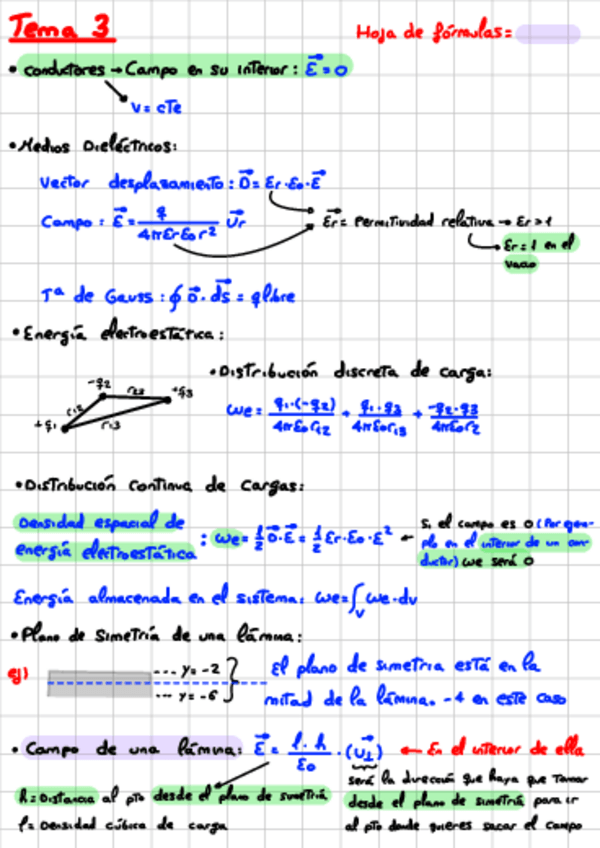 Tema 3
Hoja de fórmulas=
• Conductores → Campo en su interior: E=0
V=cTe
• Medios Dieléctricos:
Vector desplazamiento: D= Er·Eo·E
Campo: E= q / 4πErEor² Ur
Er= Permitividad relativa → Er>1
Er=1 en el
vacío
Tª de Gauss: ∮ D·ds = qlibre
• Energía electroestática:
• Distribución discreta de carga:
-q2 r23 +q3
r12
+q1 r13
We= q1·(-q2) / 4πEor12 + q1·q3 / 4πEor13 + -q2·q3 / 4πEor2
• Distribución continua de cargas:
Densidad espacial de
energía electroestática : we= 1/2 D·E = 1/2 Er·Eo·E²
← Si el campo es 0 (Por ejem-
plo en el interior de un con-
ductor) we será 0
Energía almacenada en el sistema: We=∫v we·dv
• Plano de simetría de una lámina:
ej) --- y=-2
--- y=-6
El plano de simetría está en la
mitad de la lámina. -4 en este caso
• Campo de una lámina: E= ρ·h / Eo ·(u⊥) ← En el interior de ella
será la dirección que haya que tomar
desde el plano de simetría para ir
al pto donde quieres sacar el campo
h=Distancia al pto desde el plano de simetría
ρ=Densidad cúbica de carga